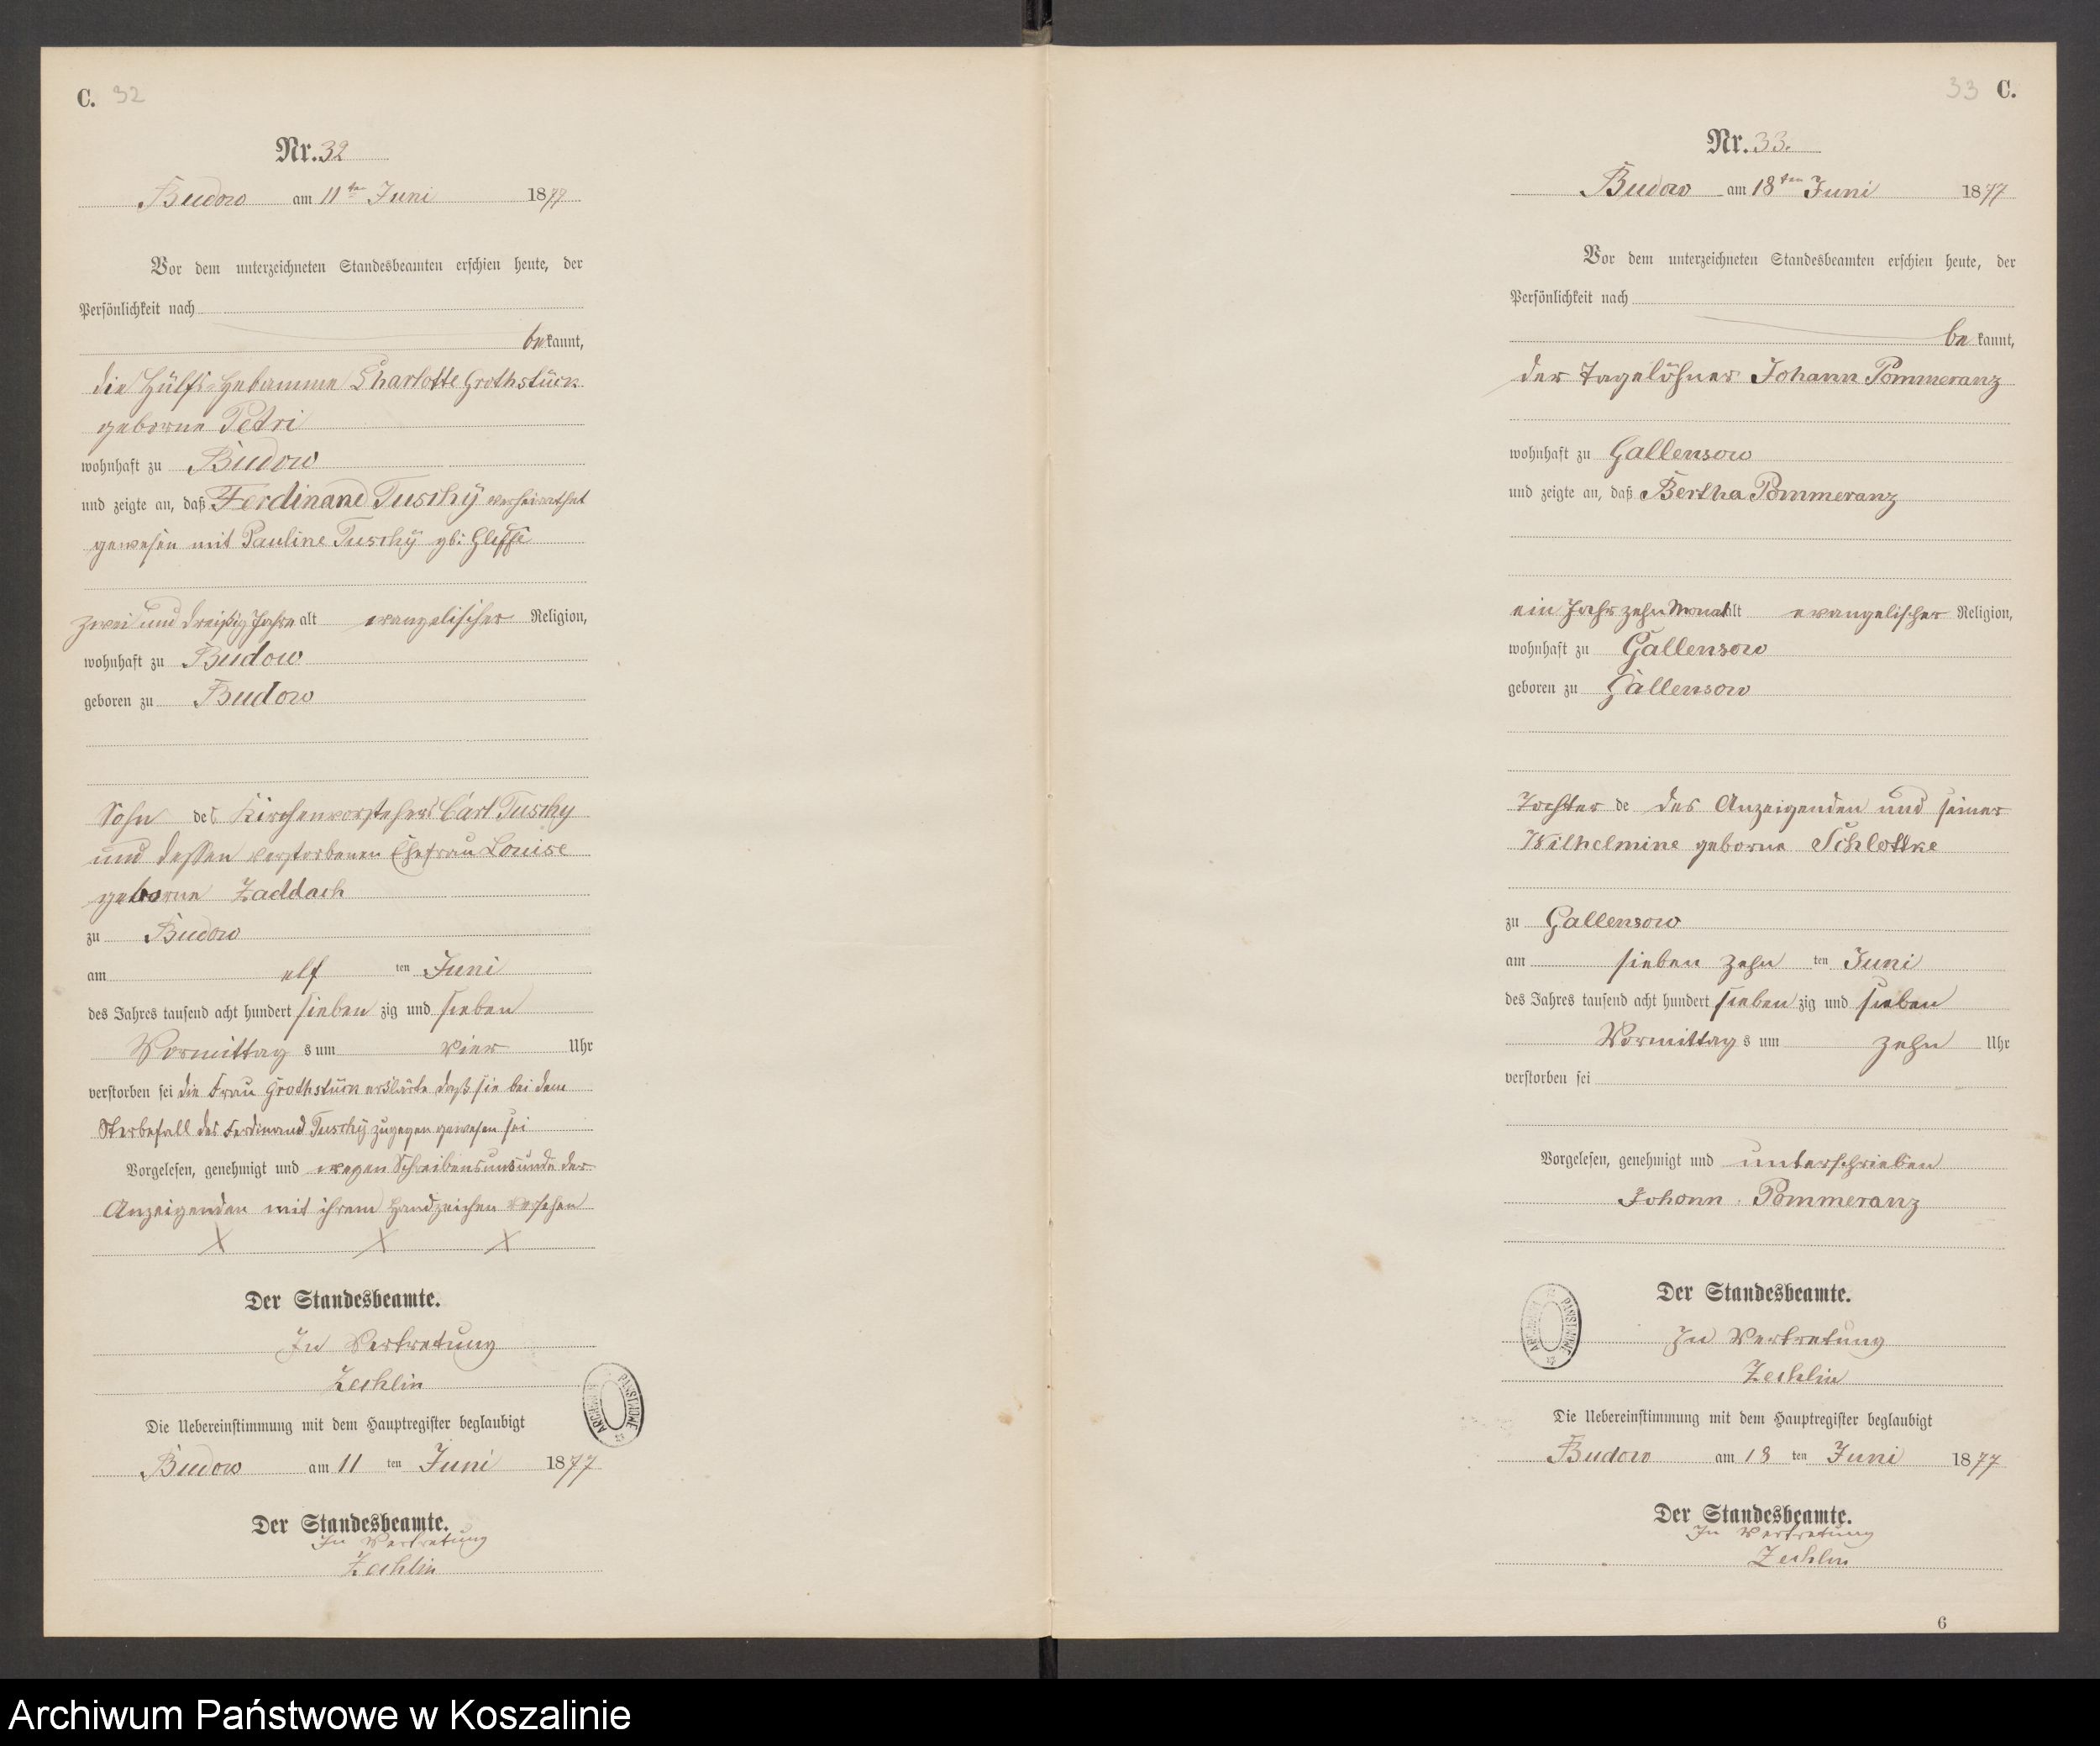 C. 32
Nr. 32
Budow am 11ten Juni 1877
Vor dem unterzeichneten Standesbeamten erschien heute, der
Persönlichkeit nach
bekannt,
die Hülfs-Hebamme Charlotte Grothstück
geborne Petri
wohnhaft zu Budow
und zeigte an, daß Ferdinand Tuschÿ verheirathet
gewesen mit Pauline Tuschÿ gb:
zwei und dreißig Jahre alt evangelischer Religion,
wohnhaft zu Budow
geboren zu Budow
Sohn des Kirchenvorstehers Carl Tuschy
und dessen verstorbenen Ehefrau Louise
geborne Zaddach
zu Budow
am elf ten Juni
des Jahres tausend acht hundert sieben zig und sieben
Vormittag s um vier Uhr
verstorben sei die Frau Grothstück erklärte daß sie bei dem
Sterbefall des Ferdinand Tuschÿ zugegen gewesen sei
Vorgelesen, genehmigt und wegen Schreibensunkunde der
Anzeigenden mit ihrem Handzeichen versehen
X X X
Der Standesbeamte.
In Vertretung
Zechlin
Die Uebereinstimmung mit dem Hauptregister beglaubigt
Budow am 11 ten Juni 1877
Der Standesbeamte.
In Vertretung
Zechlin
ARCHIWUM PAŃSTWOWE
33 C.
Nr. 33.
Budow am 18ten Juni 1877
Vor dem unterzeichneten Standesbeamten erschien heute, der
Persönlichkeit nach
bekannt,
der Tagelöhner Johann Pommeranz
wohnhaft zu Gallensow
und zeigte an, daß Bertha Pommeranz
ein Jahr zehn Monat alt evangelischer Religion,
wohnhaft zu Gallensow
geboren zu Gallensow
Tochter de des Anzeigenden und seiner
Wilhelmine geborne Schlottke
zu Gallensow
am sieben zehn ten Juni
des Jahres tausend acht hundert sieben zig und sieben
Vormittag s um zehn Uhr
verstorben sei
Vorgelesen, genehmigt und unterschrieben
Johann Pommeranz
Der Standesbeamte.
In Vertretung
Zechlin
ARCHIWUM PAŃSTWOWE
Die Uebereinstimmung mit dem Hauptregister beglaubigt
Budow am 18 ten Juni 1877
Der Standesbeamte.
In Vertretung
Zechlin
6
Archiwum Państwowe w Koszalinie